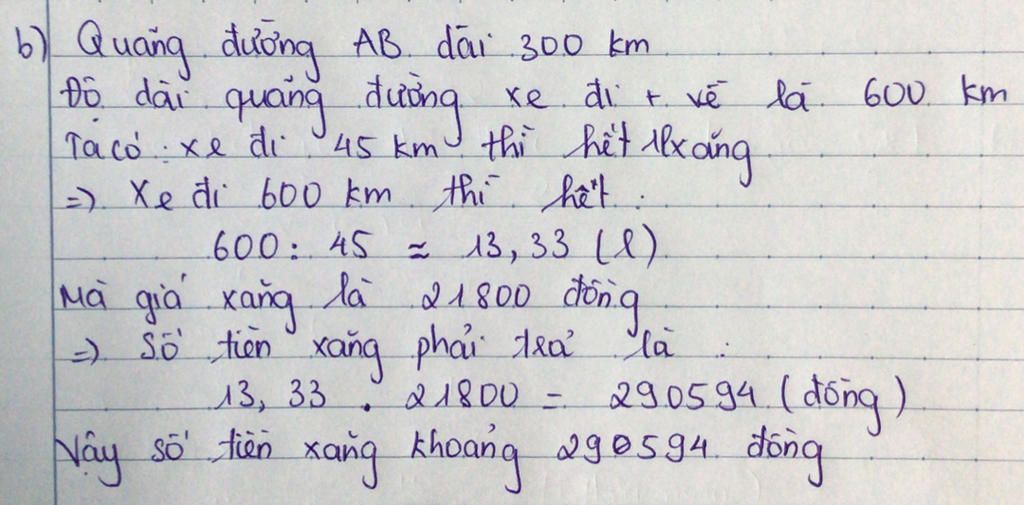 b) Quãng đường AB dài 300 km
Độ dài quãng đường xe đi + về là 600 km
Ta có: xe đi 45 km thì hết 1l xăng
=> Xe đi 600 km thì hết:
600 : 45 ≈ 13,33 (l)
Mà giá xăng là 21800 đồng
=> Số tiền xăng phải trả là :
13,33 . 21800 = 290594 (đồng)
Vậy số tiền xăng khoảng 290594 đồng